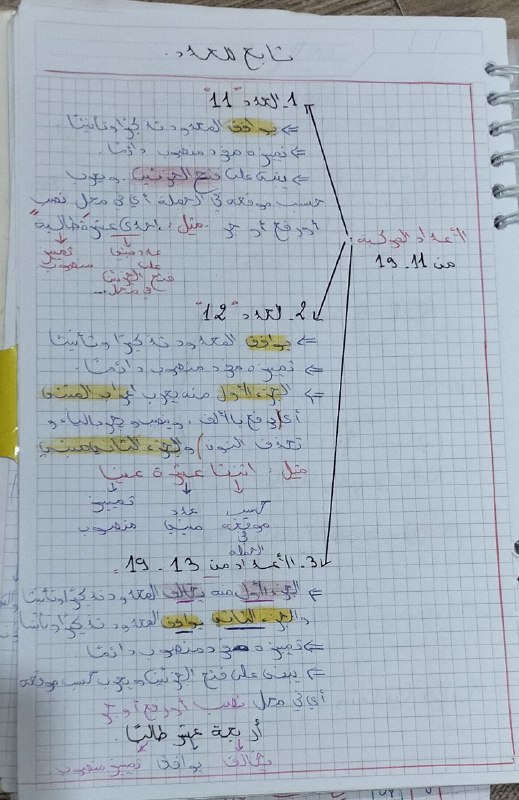 تابع العدد
الأعداد المركبة:
من 11 - 19
1- العدد "11"
⇐ يوافق المعدود تذكيرا وتأنيثا
⇐ تمييزه مفرد منصوب دائما.
⇐ يبنى على فتح الجزئين، ويعرب
حسب موقعه في الجملة أي في محل نصب
أو رفع أو جر. مثل: إحدى عشرة طالبة"
عدد مبني على فتح الجزئين في محل...
تمييز منصوب
2- العدد "12"
⇐ يوافق المعدود تذكيرا وتأنيثا
⇐ تمييزه مفرد منصوب دائما.
⇐ الجزء الأول منه يعرب إعراب المثنى
أي (يرفع بالألف، وينصب ويجر بالياء و
تحذف النون) والجزء الثاني مبني
مثل: اثنتا عشرة
حسب موقعه في الجملة
عدد مبني
تمييز منصوب
3- الأعداد من 13 - 19.
⇐ الجزء الأول منه يخالف المعدود تذكيرا وتأنيثا
والجزء الثاني يوافق المعدود تذكيرا وتأنيثا
⇐ تمييزه مفرد منصوب دائما
⇐ يبنى على فتح الجزئين ويعرب حسب موقعه
أي في محل نصب أو رفع أو جر
أربعة عشر طالبًا.
يخالف يوافق تمييز منصوب.